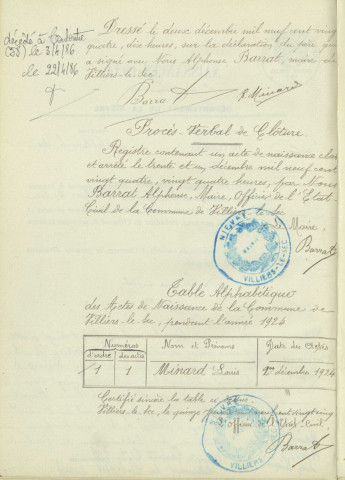 décédé à
(58) le 3/4/86
le 22/4/86
Dressé le deux décembre mil neuf cent vingt
quatre, dix heures, sur la déclaration du père qui
a signé avec Nous Alphonse Barrat, maire de
Villiers-le-Sec
Barrat
L. Minard
Procès Verbal de Clôture
Registre contenant un acte de naissance clos
et arrêté le trente et un décembre mil neuf cent
vingt quatre, vingt quatre heures, par Nous
Barrat Alphonse, Maire, Officier de l'Etat-
Civil de la Commune de Villiers-le-Sec
Le Maire,
Barrat
NIÈVRE
MAIRIE
VILLIERS-LE-SEC
Table Alphabétique
des Actes de Naissance de la Commune de
Villiers-le-Sec, pendant l'année 1924
Numéros
d'ordre des actes Nom et Prénoms Date des Actes
1 1 Minard Louis 1er décembre 1924
Certifié sincère la table
Villiers-le-Sec, le quinze cent vingt cinq
L'officier de l'Etat-Civil,
Barrat
VILLIERS-LE-SEC